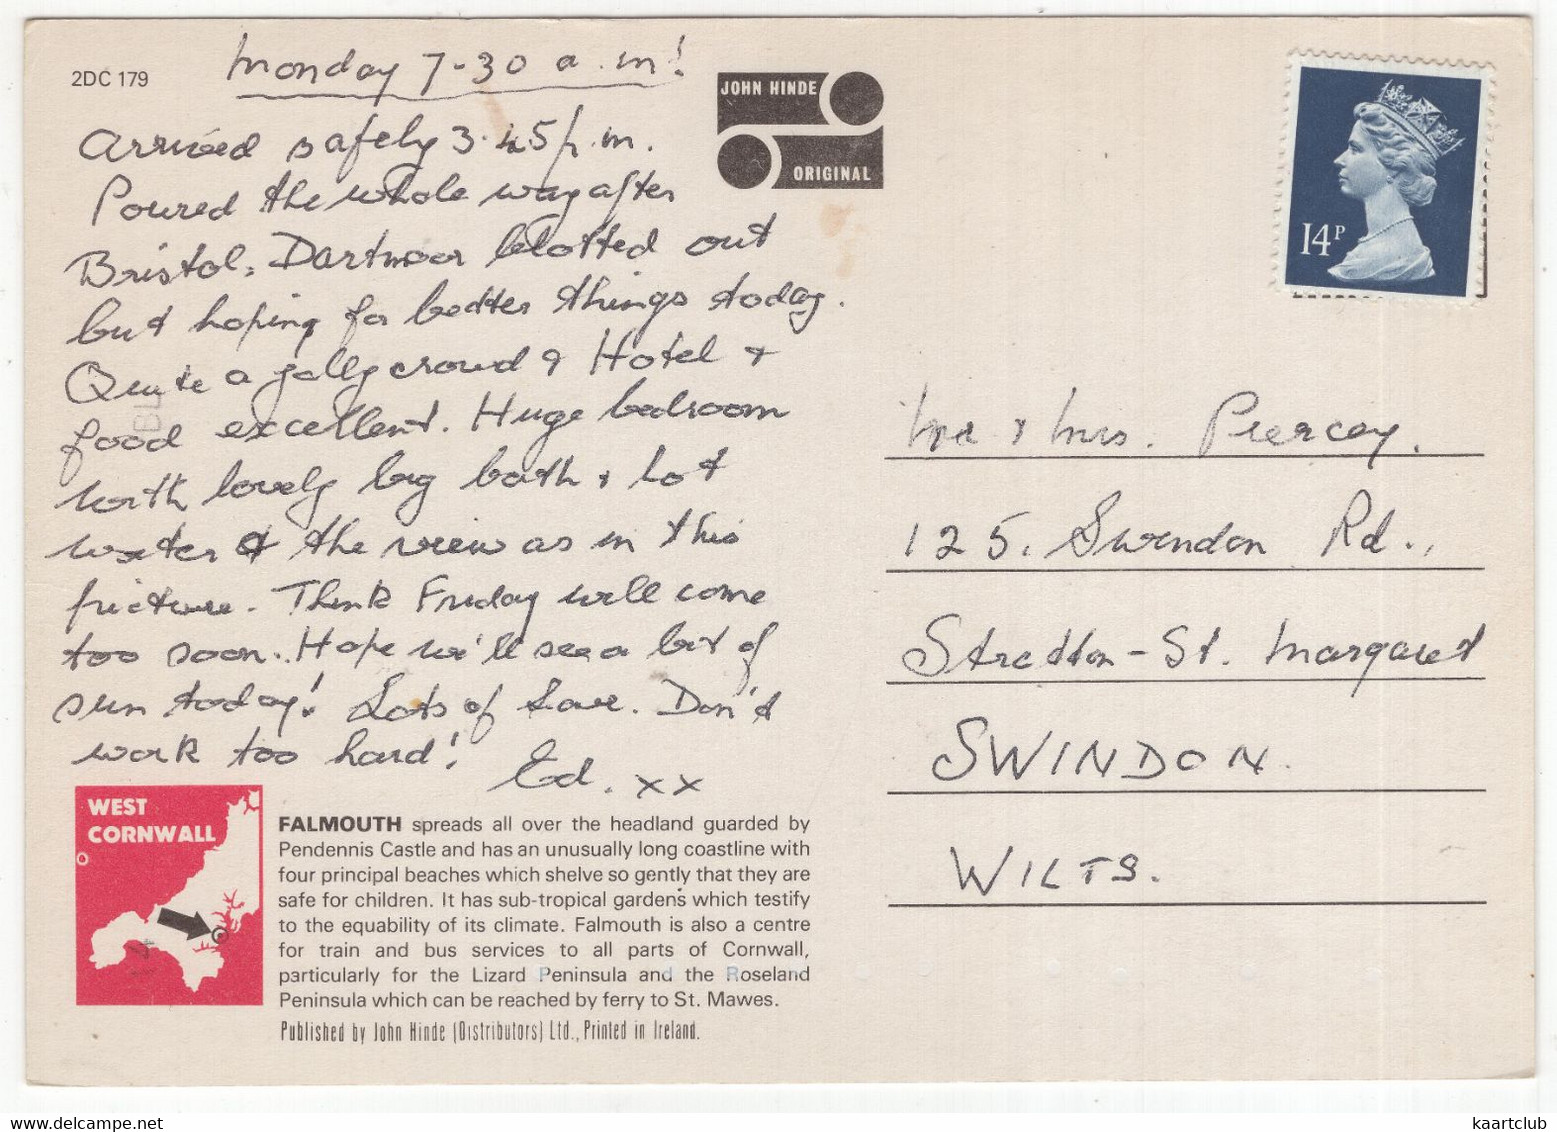 2DC 179
Monday 7-30 a.m!
Arrived safely 3.45p.m.
Poured the whole way after
Bristol, Dartmoor blotted out
but hoping for better things today.
Quite a jolly crowd & Hotel &
food excellent. Huge bedroom
with lovely big bath & hot
water & the view as in this
picture. Think Friday will come
too soon. Hope we'll see a bit of
sun today! Lots of Love. Don't
work too hard!
Ed. xx
JOHN HINDE
ORIGINAL
14P
Mr & Mrs. Piercey.
125. Swindon Rd.,
Stratton-St. Margaret
SWINDON.
WILTS.
WEST
CORNWALL
FALMOUTH spreads all over the headland guarded by
Pendennis Castle and has an unusually long coastline with
four principal beaches which shelve so gently that they are
safe for children. It has sub-tropical gardens which testify
to the equability of its climate. Falmouth is also a centre
for train and bus services to all parts of Cornwall,
particularly for the Lizard Peninsula and the Roseland
Peninsula which can be reached by ferry to St. Mawes.
Published by John Hinde (Distributors) Ltd., Printed in Ireland.
www.delcampe.net
kaartclub